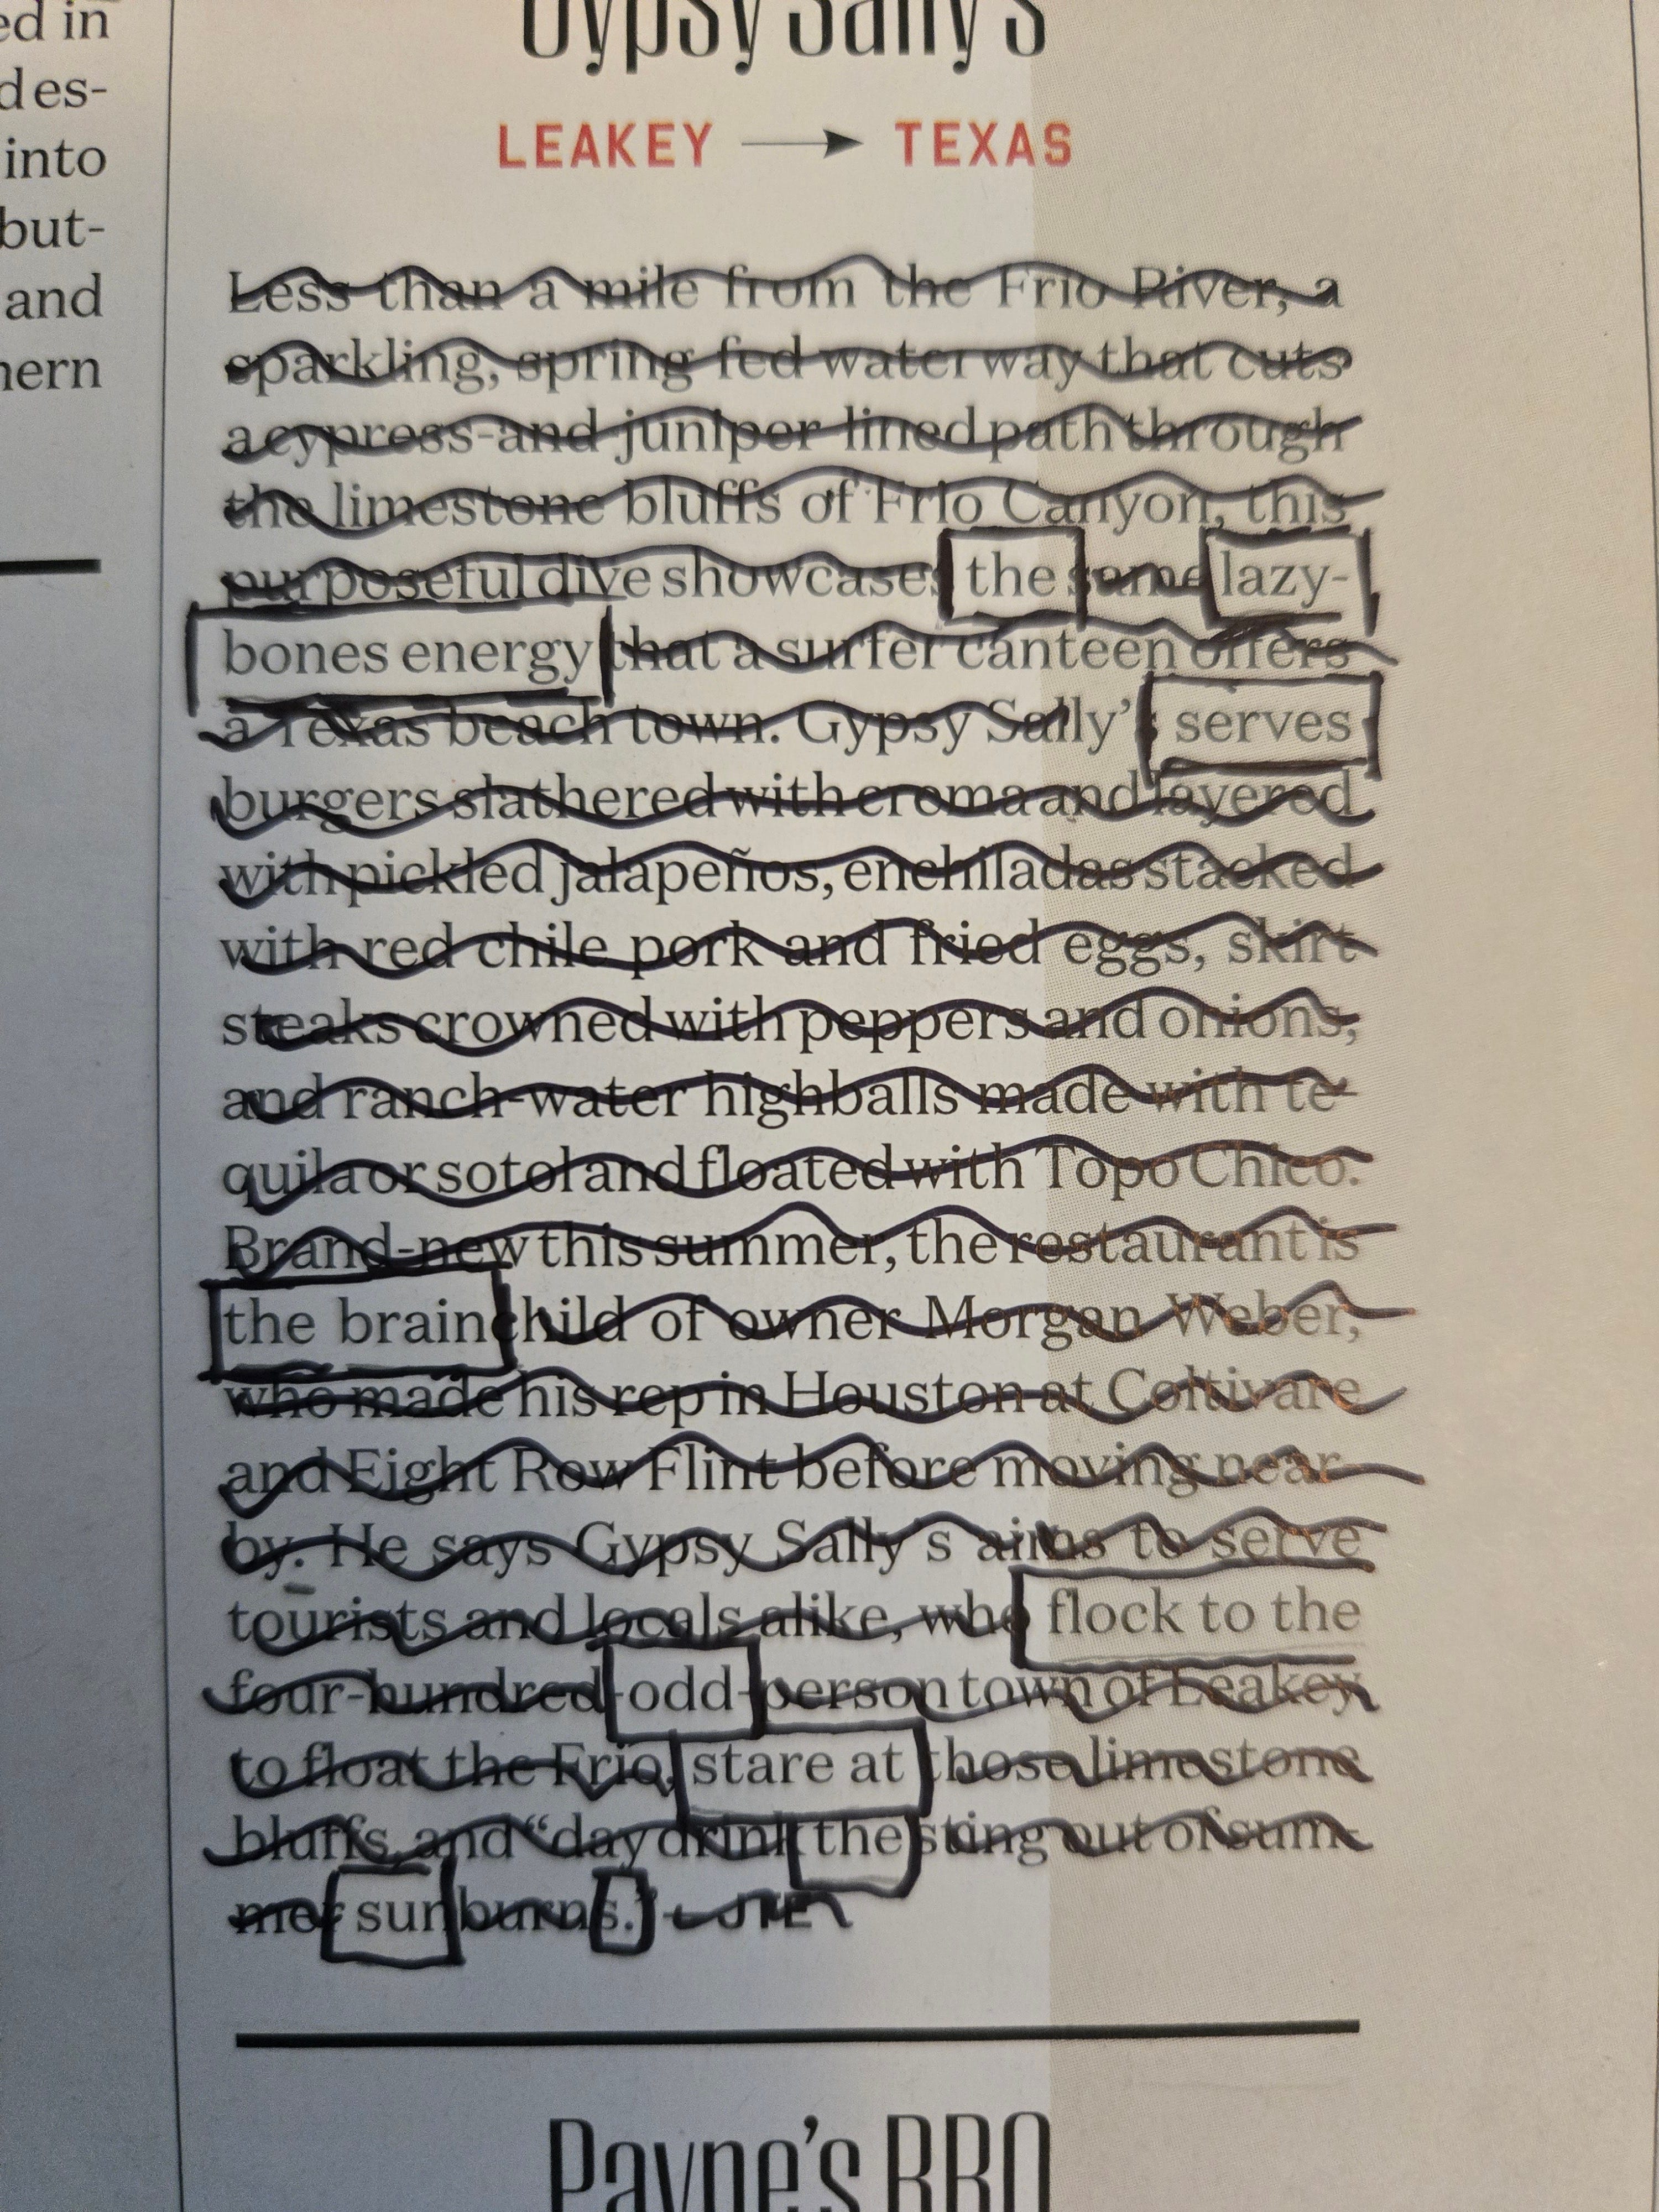 ed in
des-
into
but-
and
hern
Gypsy Sally's
LEAKEY → TEXAS
Less than a mile from the Frio River, a
sparkling, spring-fed waterway that cuts
a cypress-and-juniper-lined path through
the limestone bluffs of Frio Canyon, this
purposeful dive showcases the same lazy-
bones energy that a surfer canteen offers
a Texas beach town. Gypsy Sally's serves
burgers slathered with crema and layered
with pickled jalapeños, enchiladas stacked
with red chile pork and fried eggs, skirt
steaks crowned with peppers and onions,
and ranch-water highballs made with te-
quila or sotol and floated with Topo Chico.
Brand-new this summer, the restaurant is
the brainchild of owner Morgan Weber,
who made his rep in Houston at Coltivare
and Eight Row Flint before moving near-
by. He says Gypsy Sally's aims to serve
tourists and locals alike, who flock to the
four-hundred-odd-person town of Leakey
to float the Frio, stare at those limestone
bluffs, and "day drink the sting out of sum-
mer sunburns." —JTE
Payne's BBQ